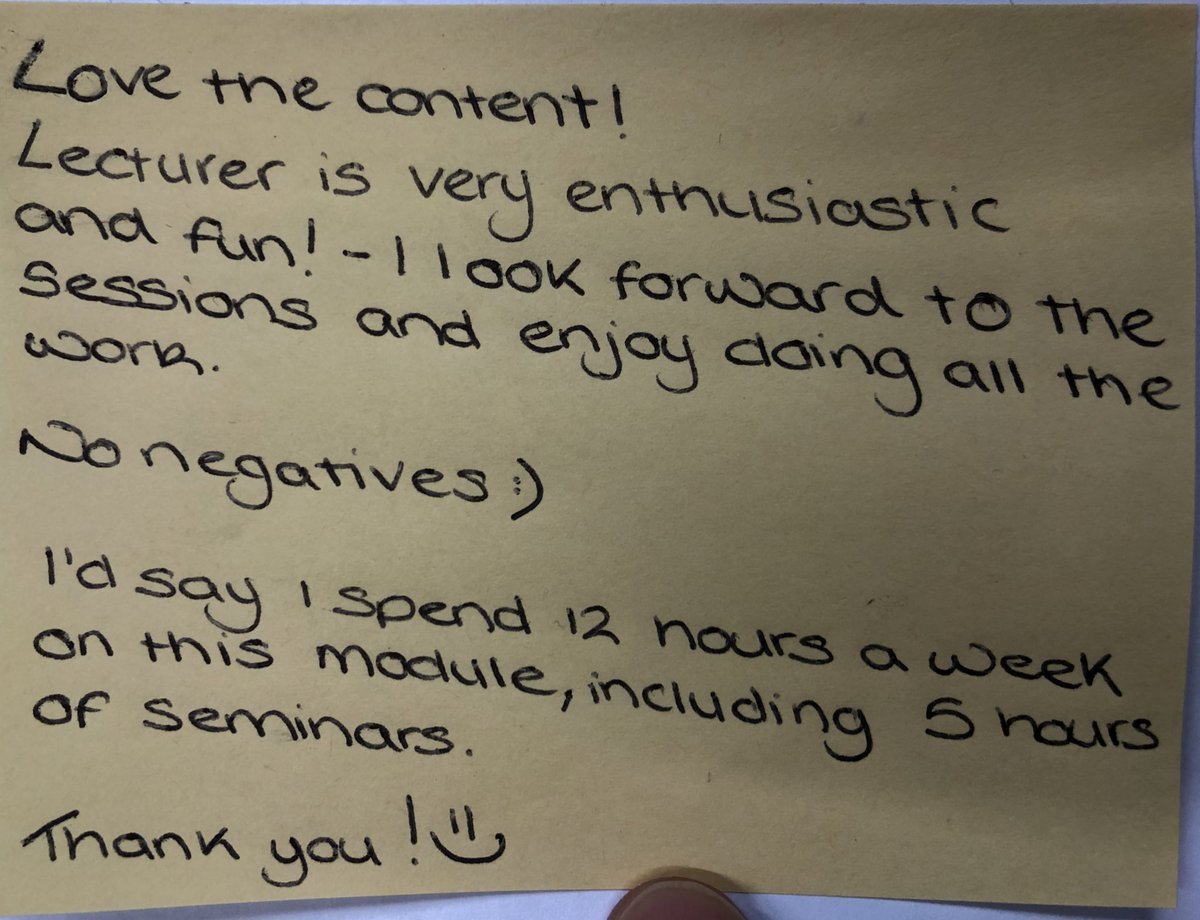 Love the content!
Lecturer is very enthusiastic
and fun! - I look forward to the
sessions and enjoy doing all the
work.
No negatives :)
I'd say I spend 12 hours a week
on this module, including 5 hours
of seminars.
Thank you! :)